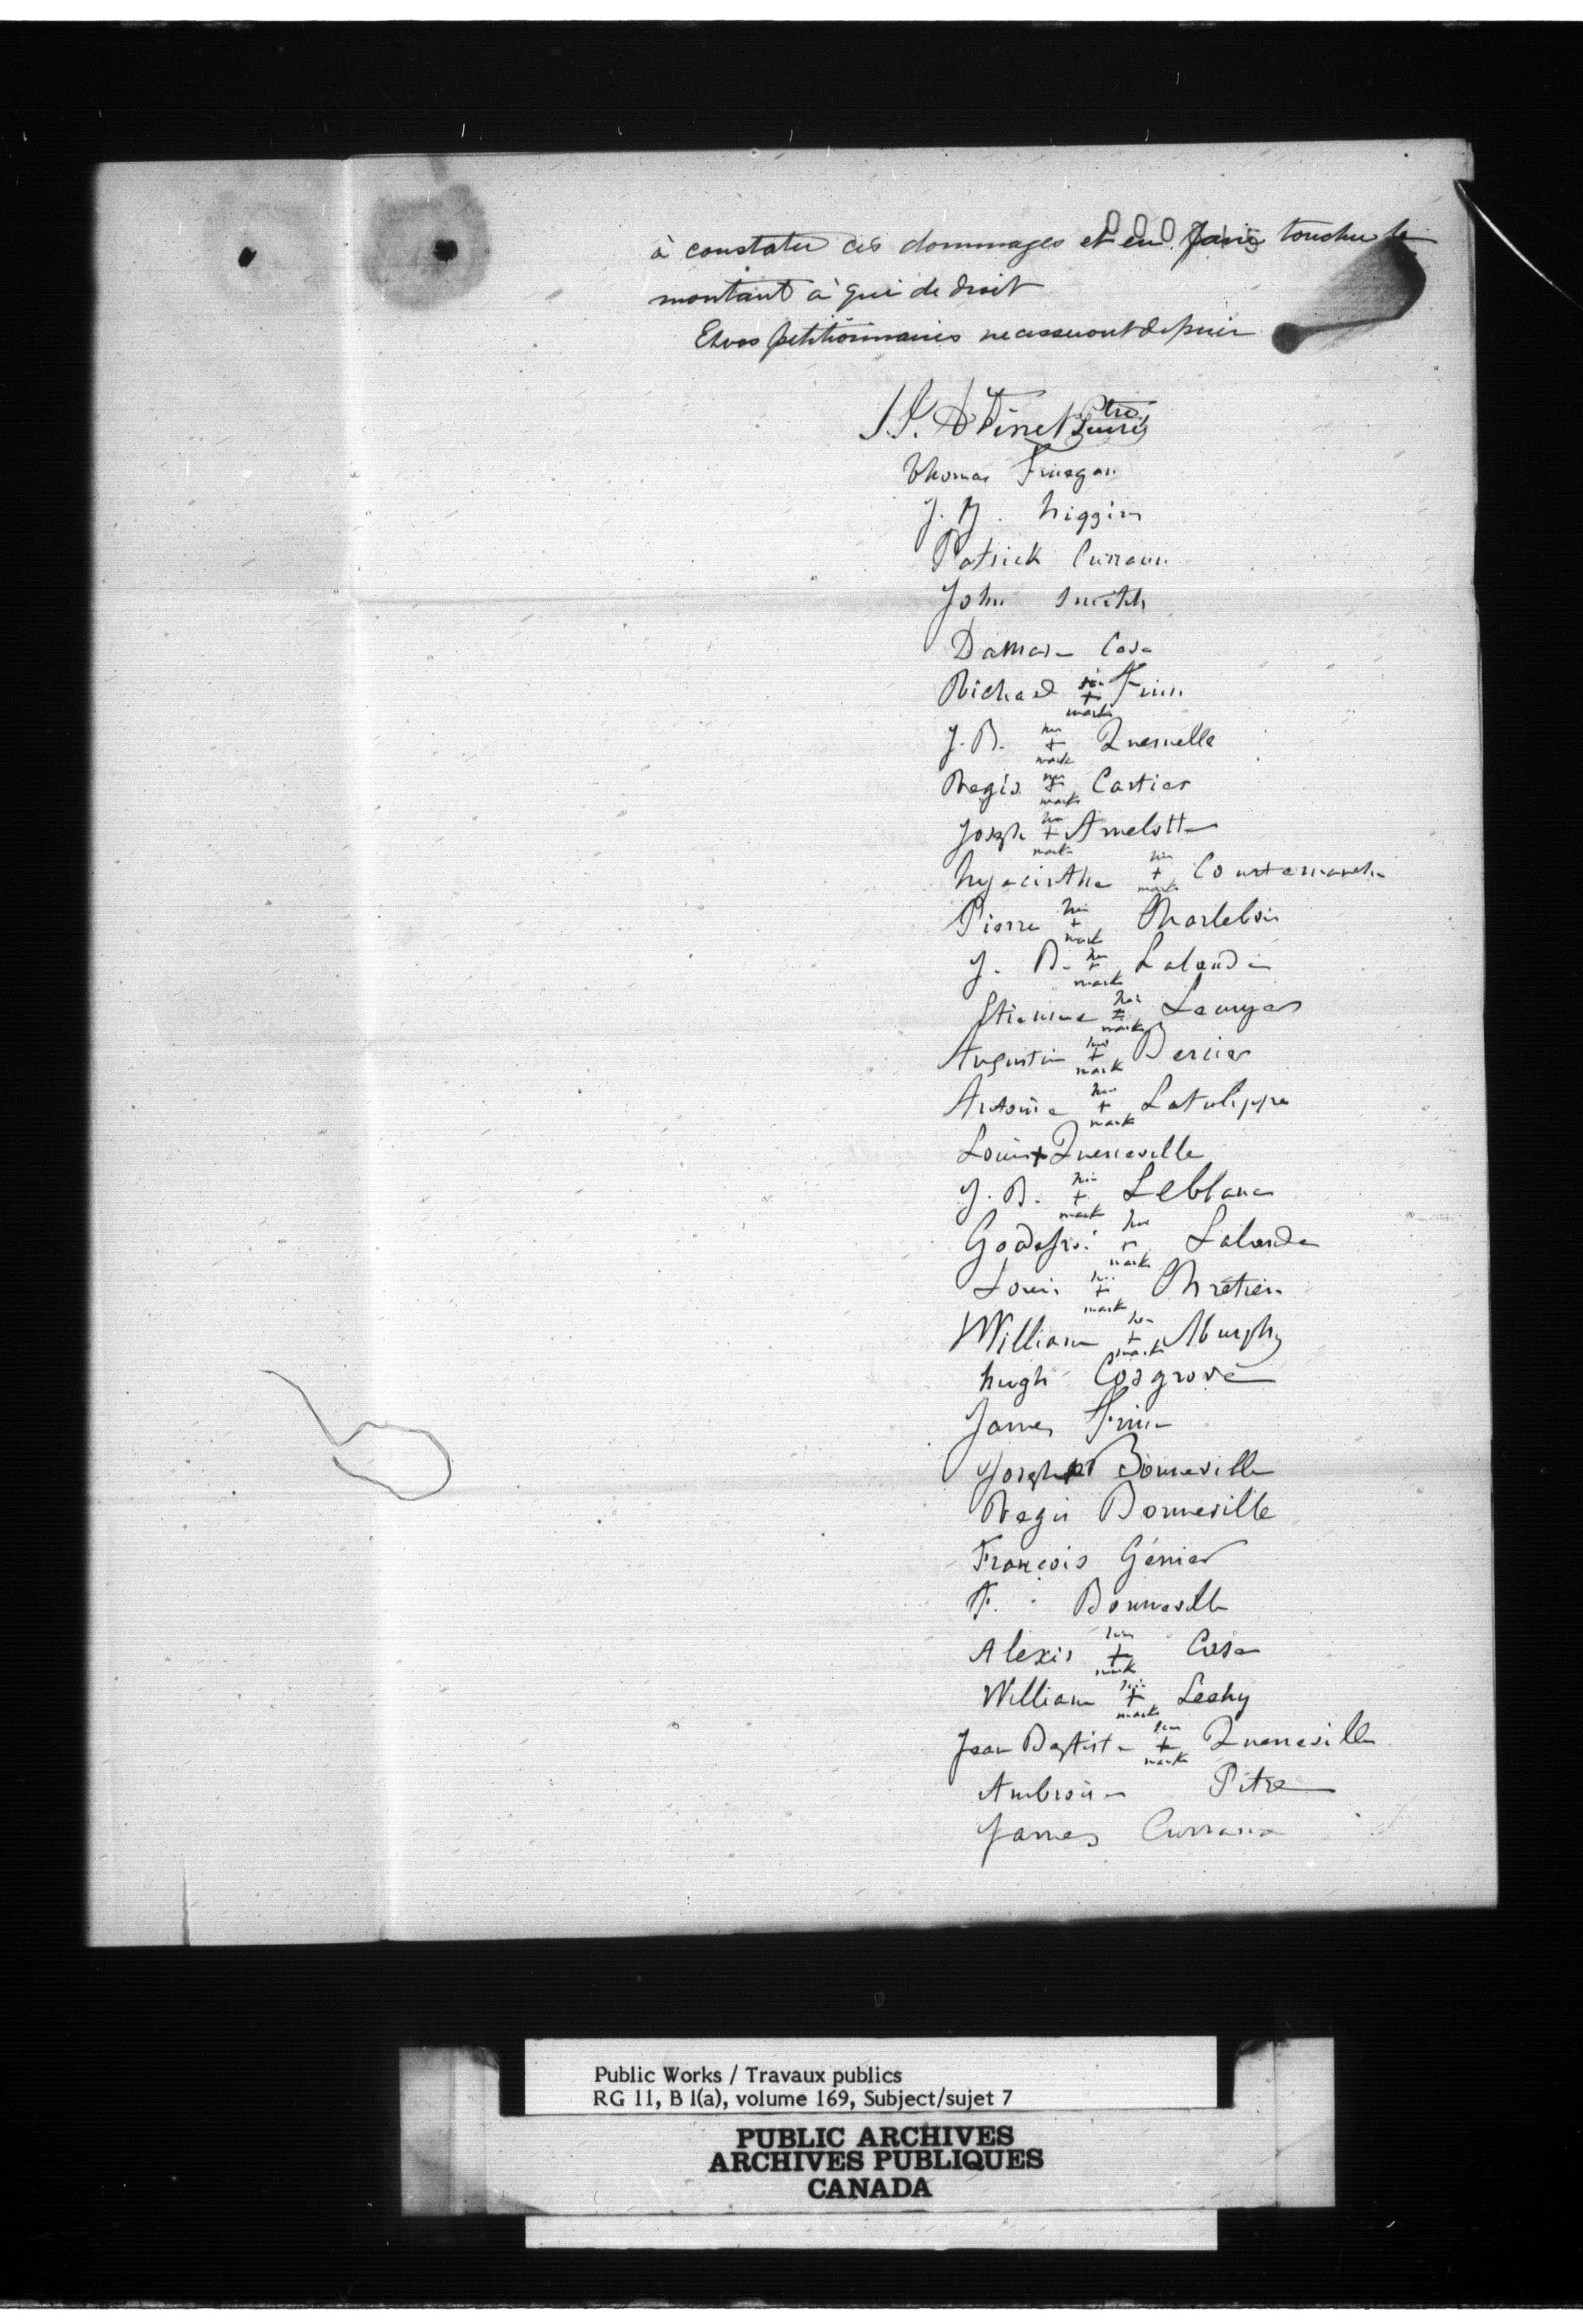 à constater ces dommages et en faire toucher le
montant à qui de droit
Et vos petitionnaires ne cesseront de prier
Ptre
Curé
Thomas Finegan
J. M. higgins
Patrick Curran
John Smith
Damase Case
Richard his + mark Finn
J. B. his + mark Quesnelle
Regis his + mark Cartier
Joseph his + mark Amelotte
hyacinthe his + mark Courtemanche
Pierre his + mark Charlebois
J. B. his + mark Lalonde
Etienne his + mark
Augustin his + mark Bercier
Antoine his + mark Latulippe
Louis + Quenneville
J. B. his + mark Leblanc
Godefroi his + mark Lalonde
Louis his + mark Chrétien
William his + mark Murphy
hugh Cosgrove
James
Joseph + Bonneville
Regis Bonneville
François Génier
F. Bonneville
Alexis his + mark Case
William his + mark Leahy
Jean Baptiste his + mark Quenneville
Ambroise Pitre
James Curran
Public Works / Travaux publics
RG 11, B 1(a), volume 169, Subject/sujet 7
PUBLIC ARCHIVES
ARCHIVES PUBLIQUES
CANADA